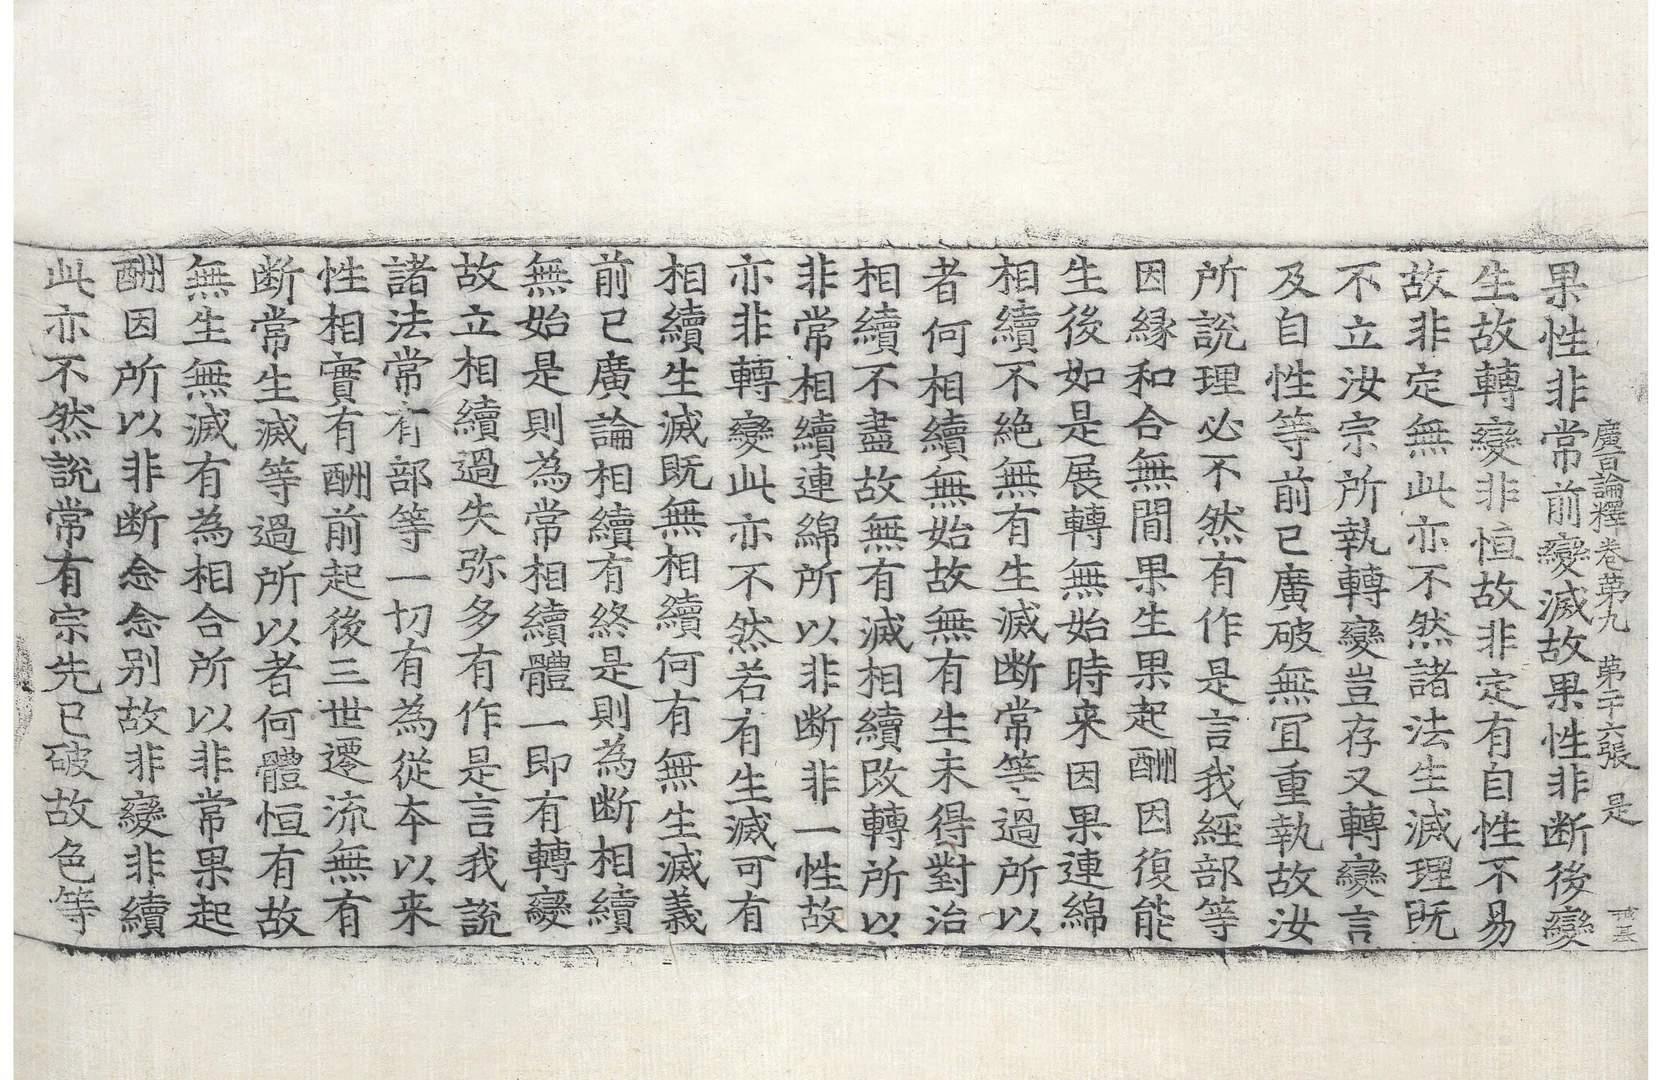 廣百論釋卷第九　第二十六張　是
果性非常前變滅故果性非断後變
生故轉變非恒故非定有自性不易
故非定無此亦不然諸法生滅理既
不立汝宗所執轉變豈存又轉變言
及自性等前已廣破無冝重執故汝
所說理必不然有作是言我經部等
因縁和合無間果生果起酬因復能
生後如是展轉無始時来因果連綿
相續不絶無有生滅断常等過所以
者何相續無始故無有生未得對治
相續不盡故無有滅相續改轉所以
非常相續連綿所以非断非一性故
亦非轉變此亦不然若有生滅可有
相續生滅既無相續何有無生滅義
前已廣論相續有終是則為断相續
無始是則為常相續體一即有轉變
故立相續過失弥多有作是言我說
諸法常有部等一切有為從夲以来
性相實有酬前起後三世遷流無有
断常生滅等過所以者何體恒有故
無生無滅有為相合所以非常果起
酬因所以非断念念别故非變非續
此亦不然說常有宗先已破故色等